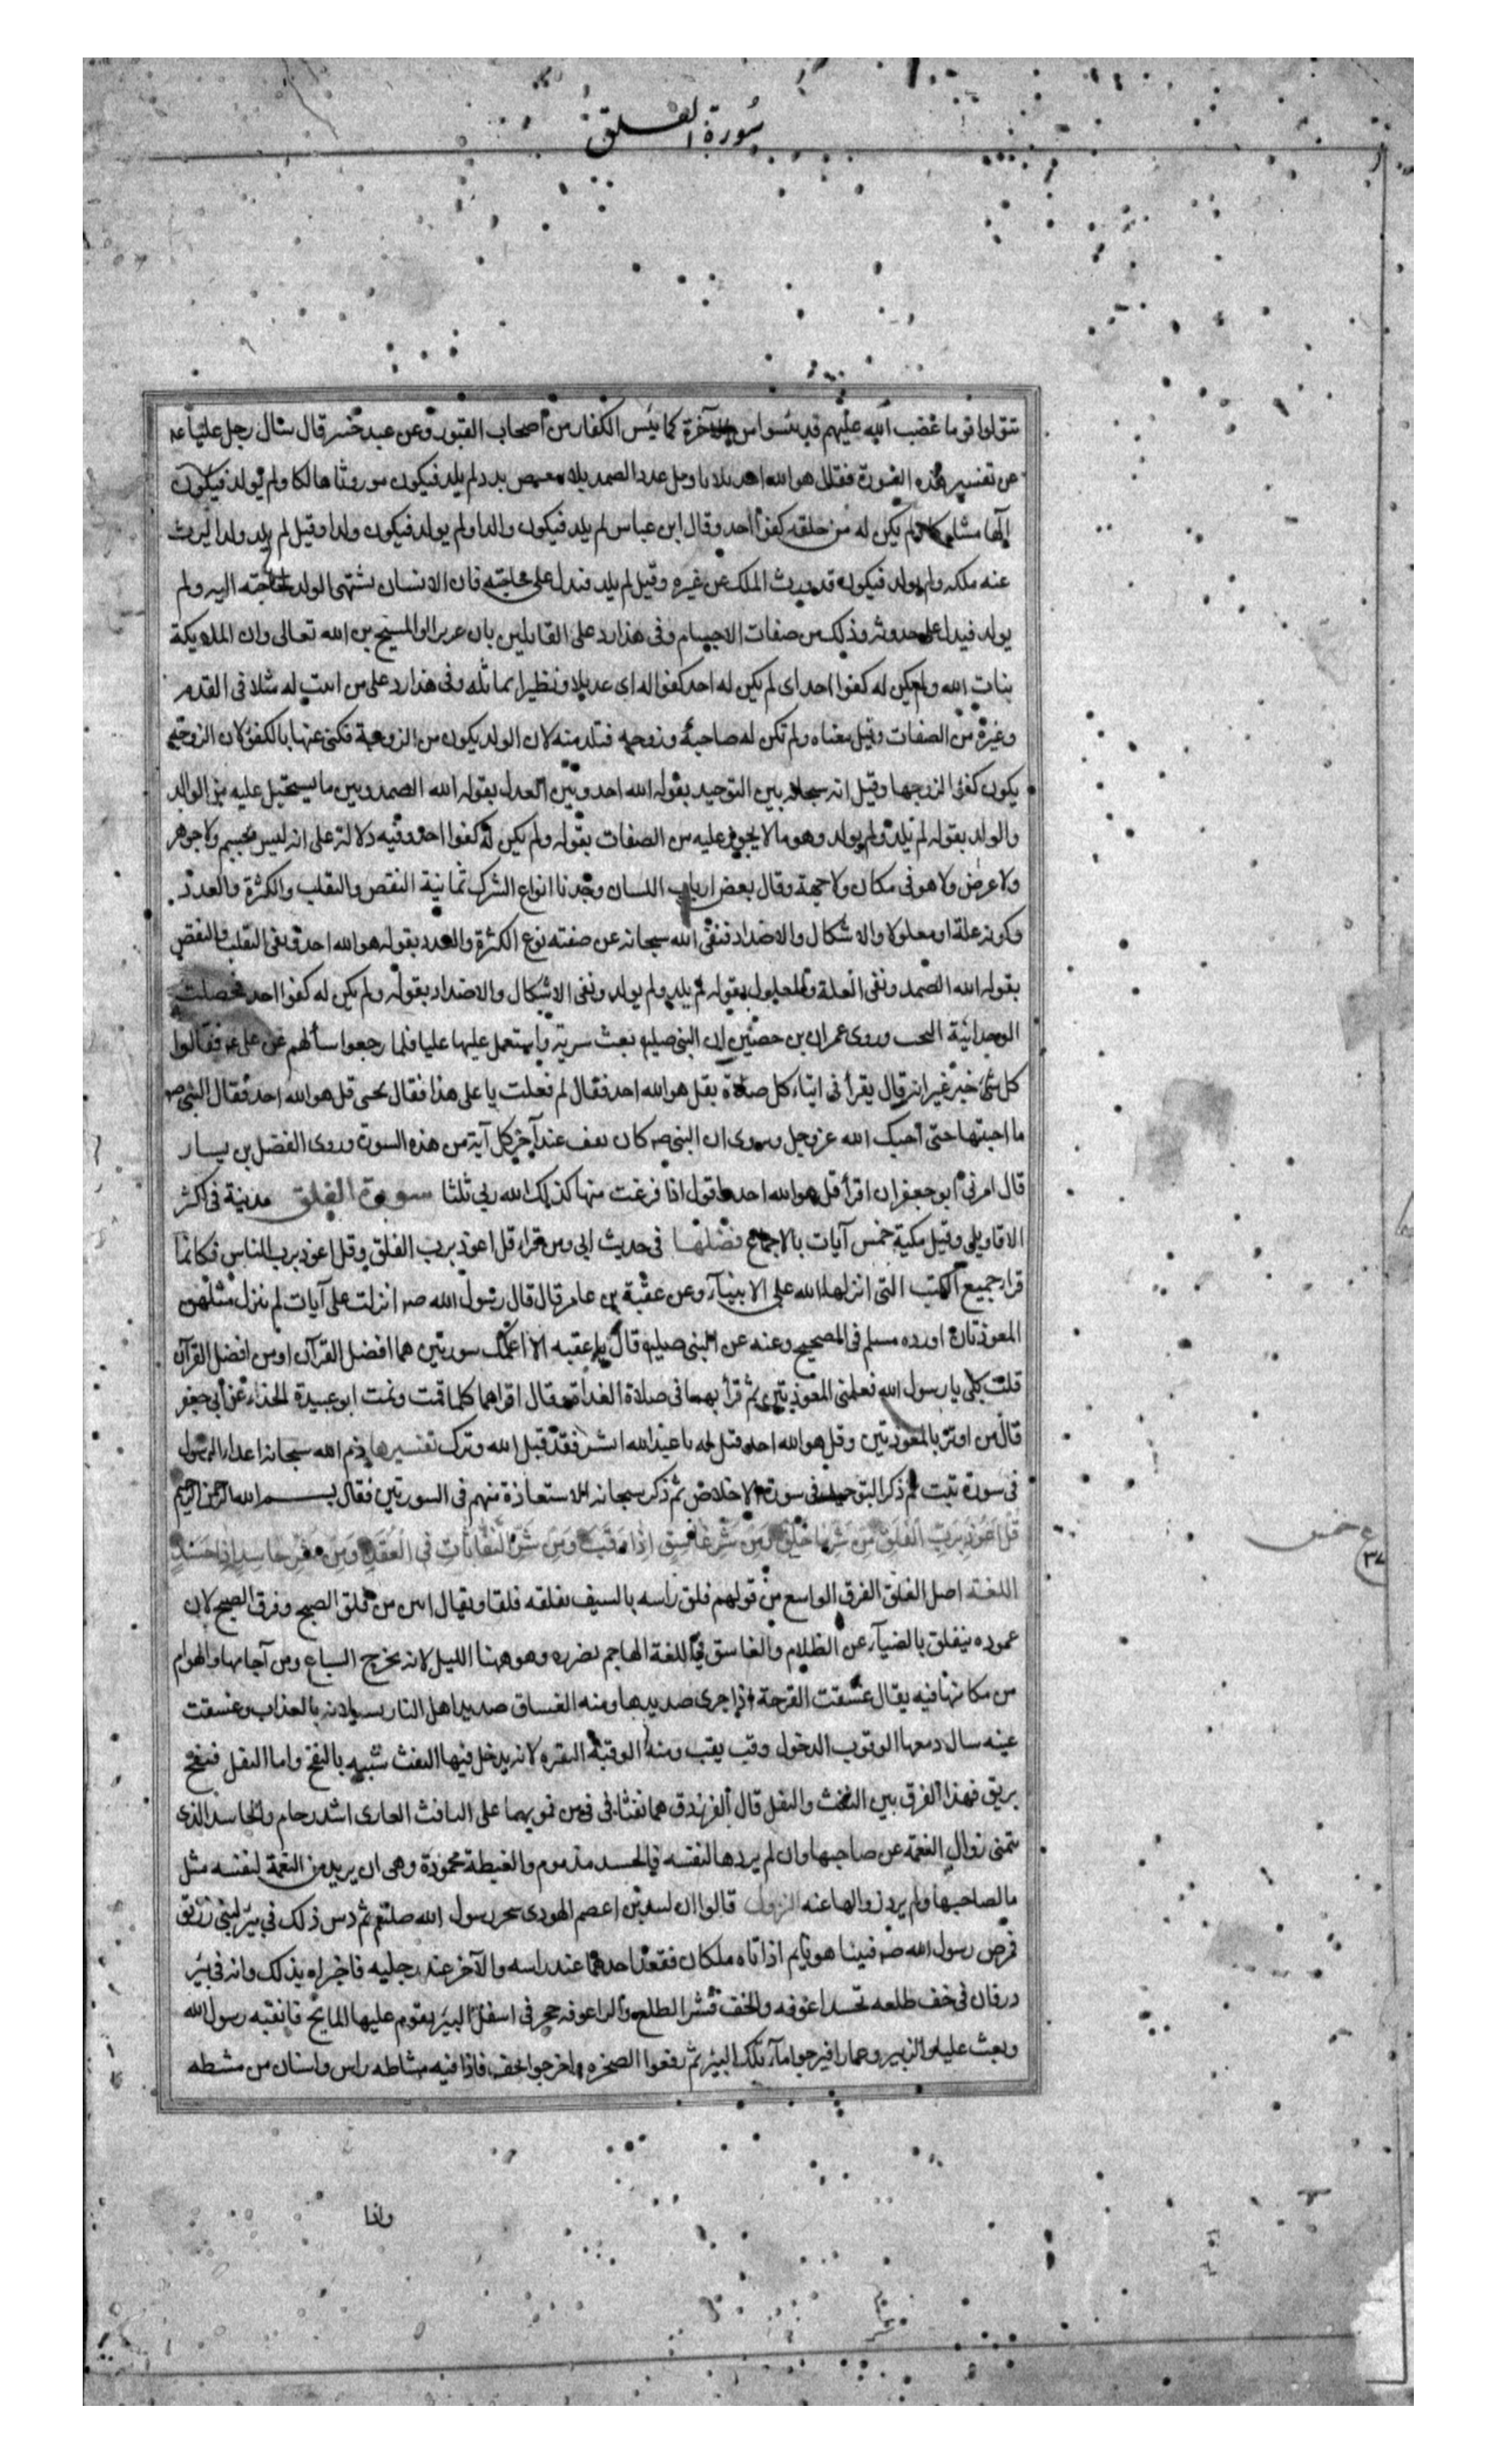 سورة الفلق
تتولوا قوما غضب الله عليهم قد يئسوا من الآخرة كما يئس الكفار من أصحاب القبور وعن عبد خير قال سال رجل عليا ع
عن تفسير هذه السورة فقال هو الله احد بلا تاويل عدد الصمد بلا تبعيض بدد لم يلد فيكون موروثا هالكا ولم يولد فيكون
آلها مشاركا ولم يكن له من خلقه كفوا احد وقال ابن عباس لم يلد فيكون والدا ولم يولد فيكون ولدا وقيل لم يلد ولدا ليرث
عنه ملكه ولم يولد فيكون قد ورث الملك عن غيره وقيل لم يلد فيدل على حاجته فان الانسان يشتهى الولد لحاجته اليه ولم
يولد فيدل على حدوثه وذلك من صفات الاجسام وفى هذا رد على القايلين بان عزيرا والمسيح بن الله تعالى وان الملايكة
بنات الله ولم يكن له كفوا احد اى لم يكن له احد كفوا له اى عديلا ونظيرا يماثله وفى هذا رد على من اثبت له مثلا فى القدم
وغيره من الصفات وقيل معناه ولم تكن له صاحبة وزوجه فتلد منه لان الولد يكون من الزوجة فكنى عنها بالكفو لان الزوجة
يكون كفوا لزوجها وقيل انه سبحانه بين التوحيد بقوله الله احد وبين العدل بقوله الله الصمد وبين ما يستحيل عليه من الوالد
والولد بقوله لم يلد ولم يولد وهو ما لا يجوز عليه من الصفات بقوله ولم يكن له كفوا احد وفيه دلالة على انه ليس بجسم ولا جوهر
ولا عرض ولا هو فى مكان ولا جهة وقال بعض ارباب اللسان وجدنا انواع الشرك ثمانية النقص والتقلب والكثرة والعدد
وكونه علة او معلولا والاشكال والاضداد فنفى الله سبحانه عن صفته نوع الكثرة والعدد بقوله هو الله احد ونفى التقلب والنقص
بقوله الله الصمد ونفى العلة والمعلول بقوله لم يلد ولم يولد ونفى الاشكال والاضداد بقوله ولم يكن له كفوا احد فحصلت
الوحدانية البحت وروى عمران بن حصين ان النبى صلى بعث سرية واستعمل عليها عليا فلما رجعوا سألهم عن على ع فقالوا
كل شئ خير غير انه قال يقرأ فى اثناء كل صلاة بقل هو الله احد فقال لم فعلت يا على هذا فقال لحبى قل هو الله احد فقال النبى ص
ما احببتها حتى أحبك الله عز وجل ويروى ان النبى ص كان يقف عند آخر كل آية من هذه السورة وروى الفضل بن يسار
قال امرنى ابو جعفر ان اقرأ قل هو الله احد واقول اذا فرغت منها كذلك الله ربى ثلثا سورة الفلق مدنية فى اكثر
الاقاويل وقيل مكية خمس آيات بالاجماع فضلها فى حديث ابى ومن قرا قل اعوذ برب الفلق وقل اعوذ برب الناس فكانما
قرا جميع الكتب التى انزلها الله على الانبياء وعن عقبة بن عامر قال قال رسول الله ص انزلت على آيات لم ينزل مثلهن
المعوذتان اورده مسلم فى الصحيح وعنه عن النبى صلى قال يا عقبه الا اعلمك سورتين هما افضل القرآن او من افضل القرآن
قلت بلى يا رسول الله فعلمنى المعوذتين ثم قرأ بهما فى صلاة الغداة وقال اقراهما كلما قمت ونمت ابو عبيدة الحذاء عن أبى جعفر
قال من اوتر بالمعوذتين وقل هو الله احد قيل له يا عبد الله ابشر فقد قبل الله وترك تفسيرها ذم الله سبحانه اعداء الرسول
فى سورة تبت ثم ذكر التوحيد فى سورة الاخلاص ثم ذكر سبحانه الاستعاذة منهم فى السورتين فقال بسم الله الرحمن الرحيم
قُلْ أَعُوذُ بِرَبِّ الْفَلَقِ مِنْ شَرِّ مَا خَلَقَ وَمِنْ شَرِّ غَاسِقٍ إِذَا وَقَبَ وَمِنْ شَرِّ النَّفَّاثَاتِ فِى الْعُقَدِ وَمِنْ شَرِّ حَاسِدٍ إِذَا حَسَدَ
خمس
ع
٣٧
اللغة اصل الفلق الفرق الواسع من قولهم فلق راسه بالسيف يفلقه فلقا ويقال ابين من فلق الصبح وفرق الصبح لان
عموده ينفلق بالضياء عن الظلام والغاسق فى اللغة الهاجم بضرره وهو ههنا الليل لانه يخرج السباع ومن آجامها والهوام
من مكانها فيه يقال غسقت القرحة اذا جرى صديدها ومنه الغساق صديد اهل النار بالعذاب وغسقت
عينه سال دمعها الوقوب الدخول وقب يقب ومنه الوقبة النقره لانه يدخل فيها النفث شبيه بالنفخ واما التفل فنفخ
بريق فهذا الفرق بين النفث والتفل قال الفرزدق هما نفثا فى فى من فمويهما على النافث العاوى اشد رجام والحاسد الذى
يتمنى زوال النعمة عن صاحبها وان لم يردها لنفسه فالحسد مذموم والغبطة محمودة وهى ان يريد من النعمة لنفسه مثل
ما لصاحبها ولم يرد زوالها عنه النزول قالوا ان لبيد بن اعصم اليهودى سحر رسول الله صلعم ثم دس ذلك فى بئر لبنى زريق
فمرض رسول الله ص فبينا هو نايم اذ اتاه ملكان فقعد احدهما عند راسه والآخر عند رجليه فاخبراه بذلك وانه فى بئر
دروان فى جف طلعه تحت راعوفه والجف قشر الطلع والراعوفه حجر فى اسفل البير يقوم عليها المايح فانتبه رسول الله
وبعث عليا والزبير وعمارا فنزحوا ماء تلك البير ثم رفعوا الصخره واخرجوا الجف فاذا فيه مشاطه راس واسنان من مشطه
واذا